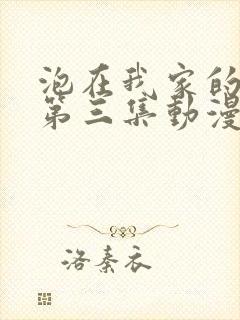 泡在我家的
第三集動漫
洛秦衣